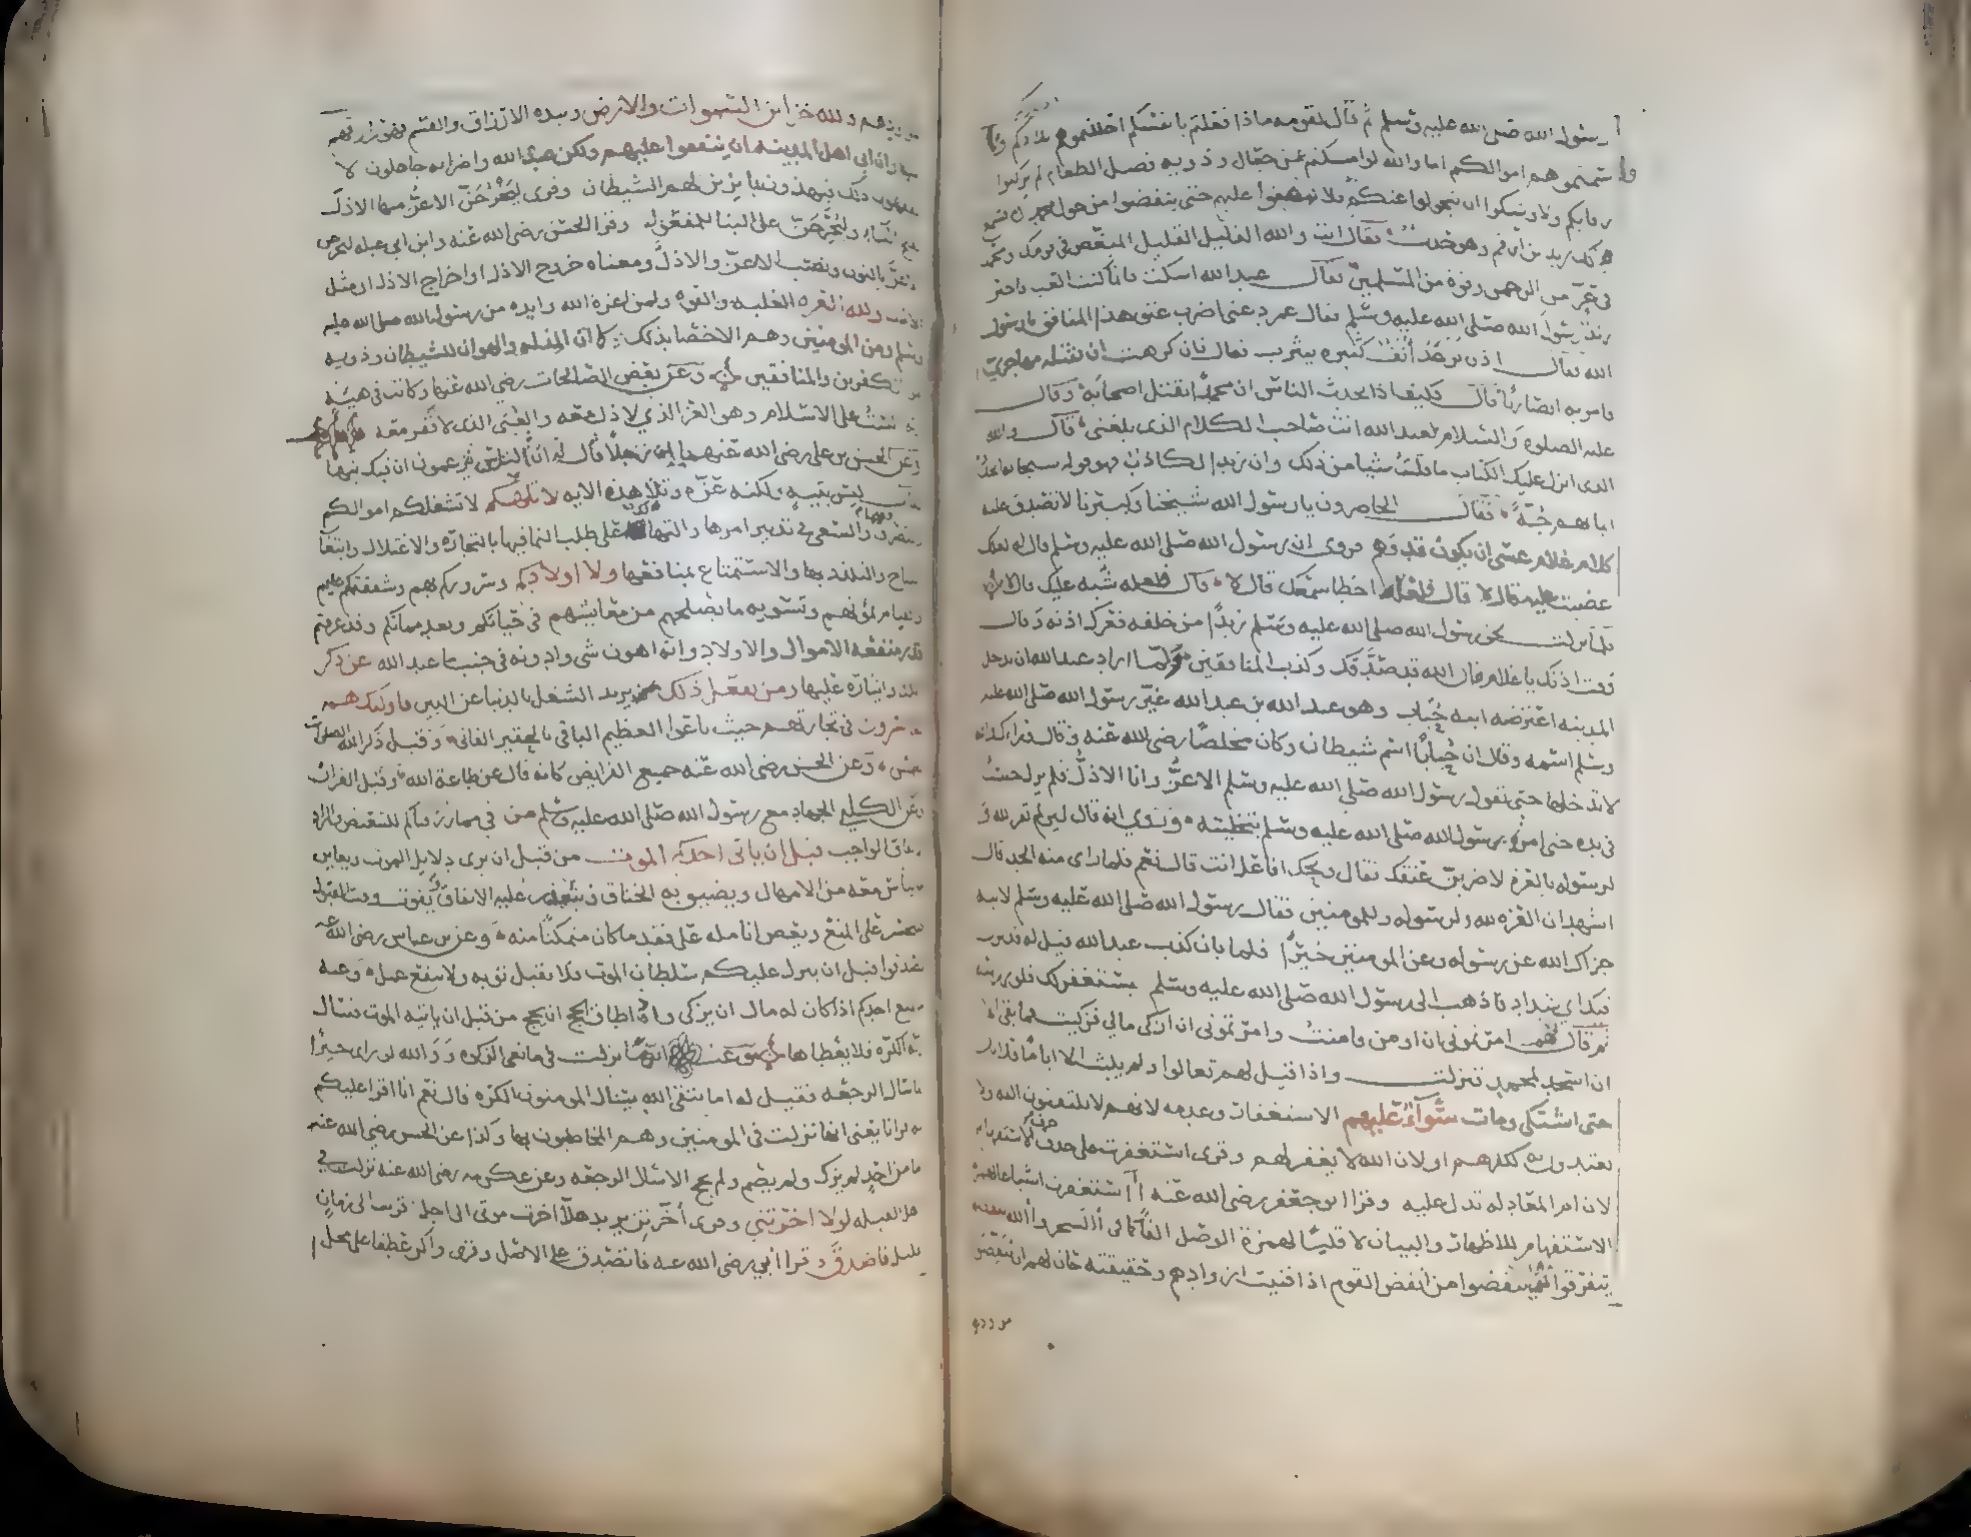 رسول الله صلى الله عليه وسلم ثم قال لقومه ماذا فعلتم بانفسكم احللتموهم بلادكم
وقاسمتموهم اموالكم اما والله لو امسكتم عن جعال وذويه فضل الطعام لم يركبوا
رقابكم ولاوشكوا ان يتحولوا عنكم فلا تنفقوا عليهم حتى ينفضوا من حول محمد فسمع
بذلك زيد بن ارقم وهو حدث فقال انت والله الذليل القليل المبغض في قومك ومحمد
في عز من الرحمن وقوة من المسلمين فقال عبد الله اسكت فانما كنت العب فاخبر
زيد رسول الله صلى الله عليه وسلم فقال عمر دعني اضرب عنق هذا المنافق يا رسول
الله فقال اذن ترعد أنف كثيرة بيثرب فقال فان كرهت ان يقتله مهاجري
فامر به انصاريا قال فكيف اذا تحدث الناس ان محمدا يقتل اصحابه وقال
عليه الصلوة والسلام لعبد الله انت صاحب الكلام الذي بلغني قال والله
الذي انزل عليك الكتاب ما قلت شيا من ذلك وان زيدا لكاذب فهو قوله سبحانه اتخذوا
ايمانهم جنة فقال الحاضرون يا رسول الله شيخنا وكبيرنا لا تصدق عليه
كلام غلام عسى ان يكون قد وهم فروى ان رسول الله صلى الله عليه وسلم قال له لعلك
غضبت عليه قال لا قال فلعله اخطا سمعك قال لا قال فلعله شبه عليك قال لا
فلما نزلت لحق رسول الله صلى الله عليه وسلم زيدا من خلفه فعرك اذنه وقال
وفت اذنك يا غلام فان الله قد صدقك وكذب المنافقين ولما اراد عبد الله ان يدخل
المدينه اعترضه ابنه حباب وهو عبد الله بن عبد الله غير رسول الله صلى الله عليه
وسلم اسمه وقال ان حبابا اسم شيطان وكان مخلصا رضي الله عنه وقال وراءك والله
لا تدخلها حتى تقول رسول الله صلى الله عليه وسلم الاعز وانا الاذل فلم يزل حبيسا
في يده حتى امره رسول الله صلى الله عليه وسلم بتخليته وروي انه قال لين لم تقر لله و
لرسوله بالعزة لاضربن عنقك فقال ويحك افاعل انت قال نعم فلما راى منه الجد قال
اشهد ان العزه لله ولرسوله وللمومنين فقال رسول الله صلى الله عليه وسلم لابنه
جزاك الله عن رسوله وعن المومنين خيرا فلما بان كذب عبد الله قيل له قد نزلت
فيك اي شداد فاذهب الى رسول الله صلى الله عليه وسلم يستغفر لك فلوى راسه
ثم قال امرتموني ان اومن فامنت وامرتموني ان ازكي مالي فزكيت فما بقي الا
ان اسجد لمحمد فنزلت واذا قيل لهم تعالوا ولم يلبث الا اياما قلايل
حتى اشتكى ومات سواء عليهم الاستغفار وعدمه لانهم لا يلتفتون اليه ولا
يعتدون به لكفرهم او لان الله لا يغفر لهم وقرى استغفرت على حذف حرف الاستفهام
لان ام المعادله تدل عليه وقرا ابو جعفر رضي الله عنه آستغفرت اشباعا لهمزة
الاستفهام للاظهار والبيان لا قلبا لهمزة الوصل الفا كما في آلسحر وآلله ينفضوا
يتفرقوا وقرى ينفضوا من انفض القوم اذا فنيت ازوادهم وحقيقته حان لهم ان ينفضوا
مزاودهم
مزاودهم ولله خزاين السموات والارض وبيده الارزاق والقسم فهو رازقهم
منها وان ابى اهل المدينه ان ينفقوا عليهم ولكن عبد الله واضرابه جاهلون لا
يفقهون ذلك فيهذون بما يزين لهم الشيطان وقرى ليخرجن الاعز منها الاذل
بفتح الياء وليخرجن على البنا للمفعول وقرا الحسن رضي الله عنه وابن ابي عبله لنخرجن
الاعز بالنون ونصب الاعز والاذل ومعناه خروج الاذل او اخراج الاذل او مثل
الاذل ولله العزه الغلبه والقوه ولمن اعزه الله وايده من رسول الله صلى الله عليه
وسلم ومن المومنين وهم الاخصا بذلك كما ان المذله والهوان للشيطان وذويه
من الكافرين والمنافقين وعن بعض الصالحات رضي الله عنها وكانت في هيئة
رثه الست على الاسلام وهو العز الذي لا ذل معه والغنى الذي لا فقر معه
وعن الحسن بن علي رضي الله عنهما ان رجلا قال له ان الناس يزعمون ان فيك تيها
قال ليس بتيه ولكنه عزه وتلا هذه الايه لا تلهكم لا تشغلكم اموالكم
والتصرف فيها والسعي في تدبير امرها والتهالك على طلب النما فيها بالتجاره والاغتلال وابتغا
النتاج والتلذذ بها والاستمتاع بمنافعها ولا اولادكم وسروركم بهم وشفقتكم عليهم
والقيام بمؤنهم وتسويه ما يصلحهم من معايشهم في حياتكم وبعد مماتكم وقد عرفتم
قدر منفعه الاموال والاولاد وانه اهون شي وادونه في جنب ما عند الله عن ذكر
الله وايثاره عليها ومن يفعل ذلك يريد الشغل بالدنيا عن الدين فاولئك هم
الخاسرون في تجارتهم حيث باعوا العظيم الباقي بالحقير الفاني وقيل ذكر الله الصلوات
الخمس وعن الحسن رضي الله عنه جميع الفرايض كانه قال عن طاعة الله وقيل القران
وعن الكلبي الجهاد مع رسول الله صلى الله عليه وسلم من في مما رزقناكم للتبعيض والمراد
الانفاق الواجب من قبل ان ياتي احدكم الموت من قبل ان يرى دلايل الموت ويعاين
ما يياس معه من الامهال ويضيق به الخناق ويتعذر عليه الانفاق ويفوت وقت القبول
فيتحسر على المنع ويعض انامله على فقد ما كان متمكنا منه وعن بن عباس رضي الله عنه
تصدقوا قبل ان ينزل عليكم سلطان الموت فلا تقبل توبه ولا ينفع عمل وعنه
ما يمنع احدكم اذا كان له مال ان يزكي واذا اطاق الحج ان يحج من قبل ان ياتيه الموت فيسال
ربه الكره فلا يعطاها وعنه انها نزلت في مانعي الزكوه ووالله لو راى خيرا
ما سال الرجعه فقيل له اما تتقي الله يسال المومنون الكره قال نعم انا اقرا عليكم
به قرانا يعني انها نزلت في المومنين وهم المخاطبون بها وكذا عن الحسن رضي الله عنه
ما من احد لم يزك ولم يصم ولم يحج الا سال الرجعه وعن عكرمه رضي الله عنه نزلت في
اهل القبله لولا اخرتني وقرى اخرتن يريد هلا اخرت موتي الى اجل قريب الى زمان
قليل فاصدق وقرا ابي رضي الله عنه فاتصدق على الاصل وقرى واكن عطفا على محل